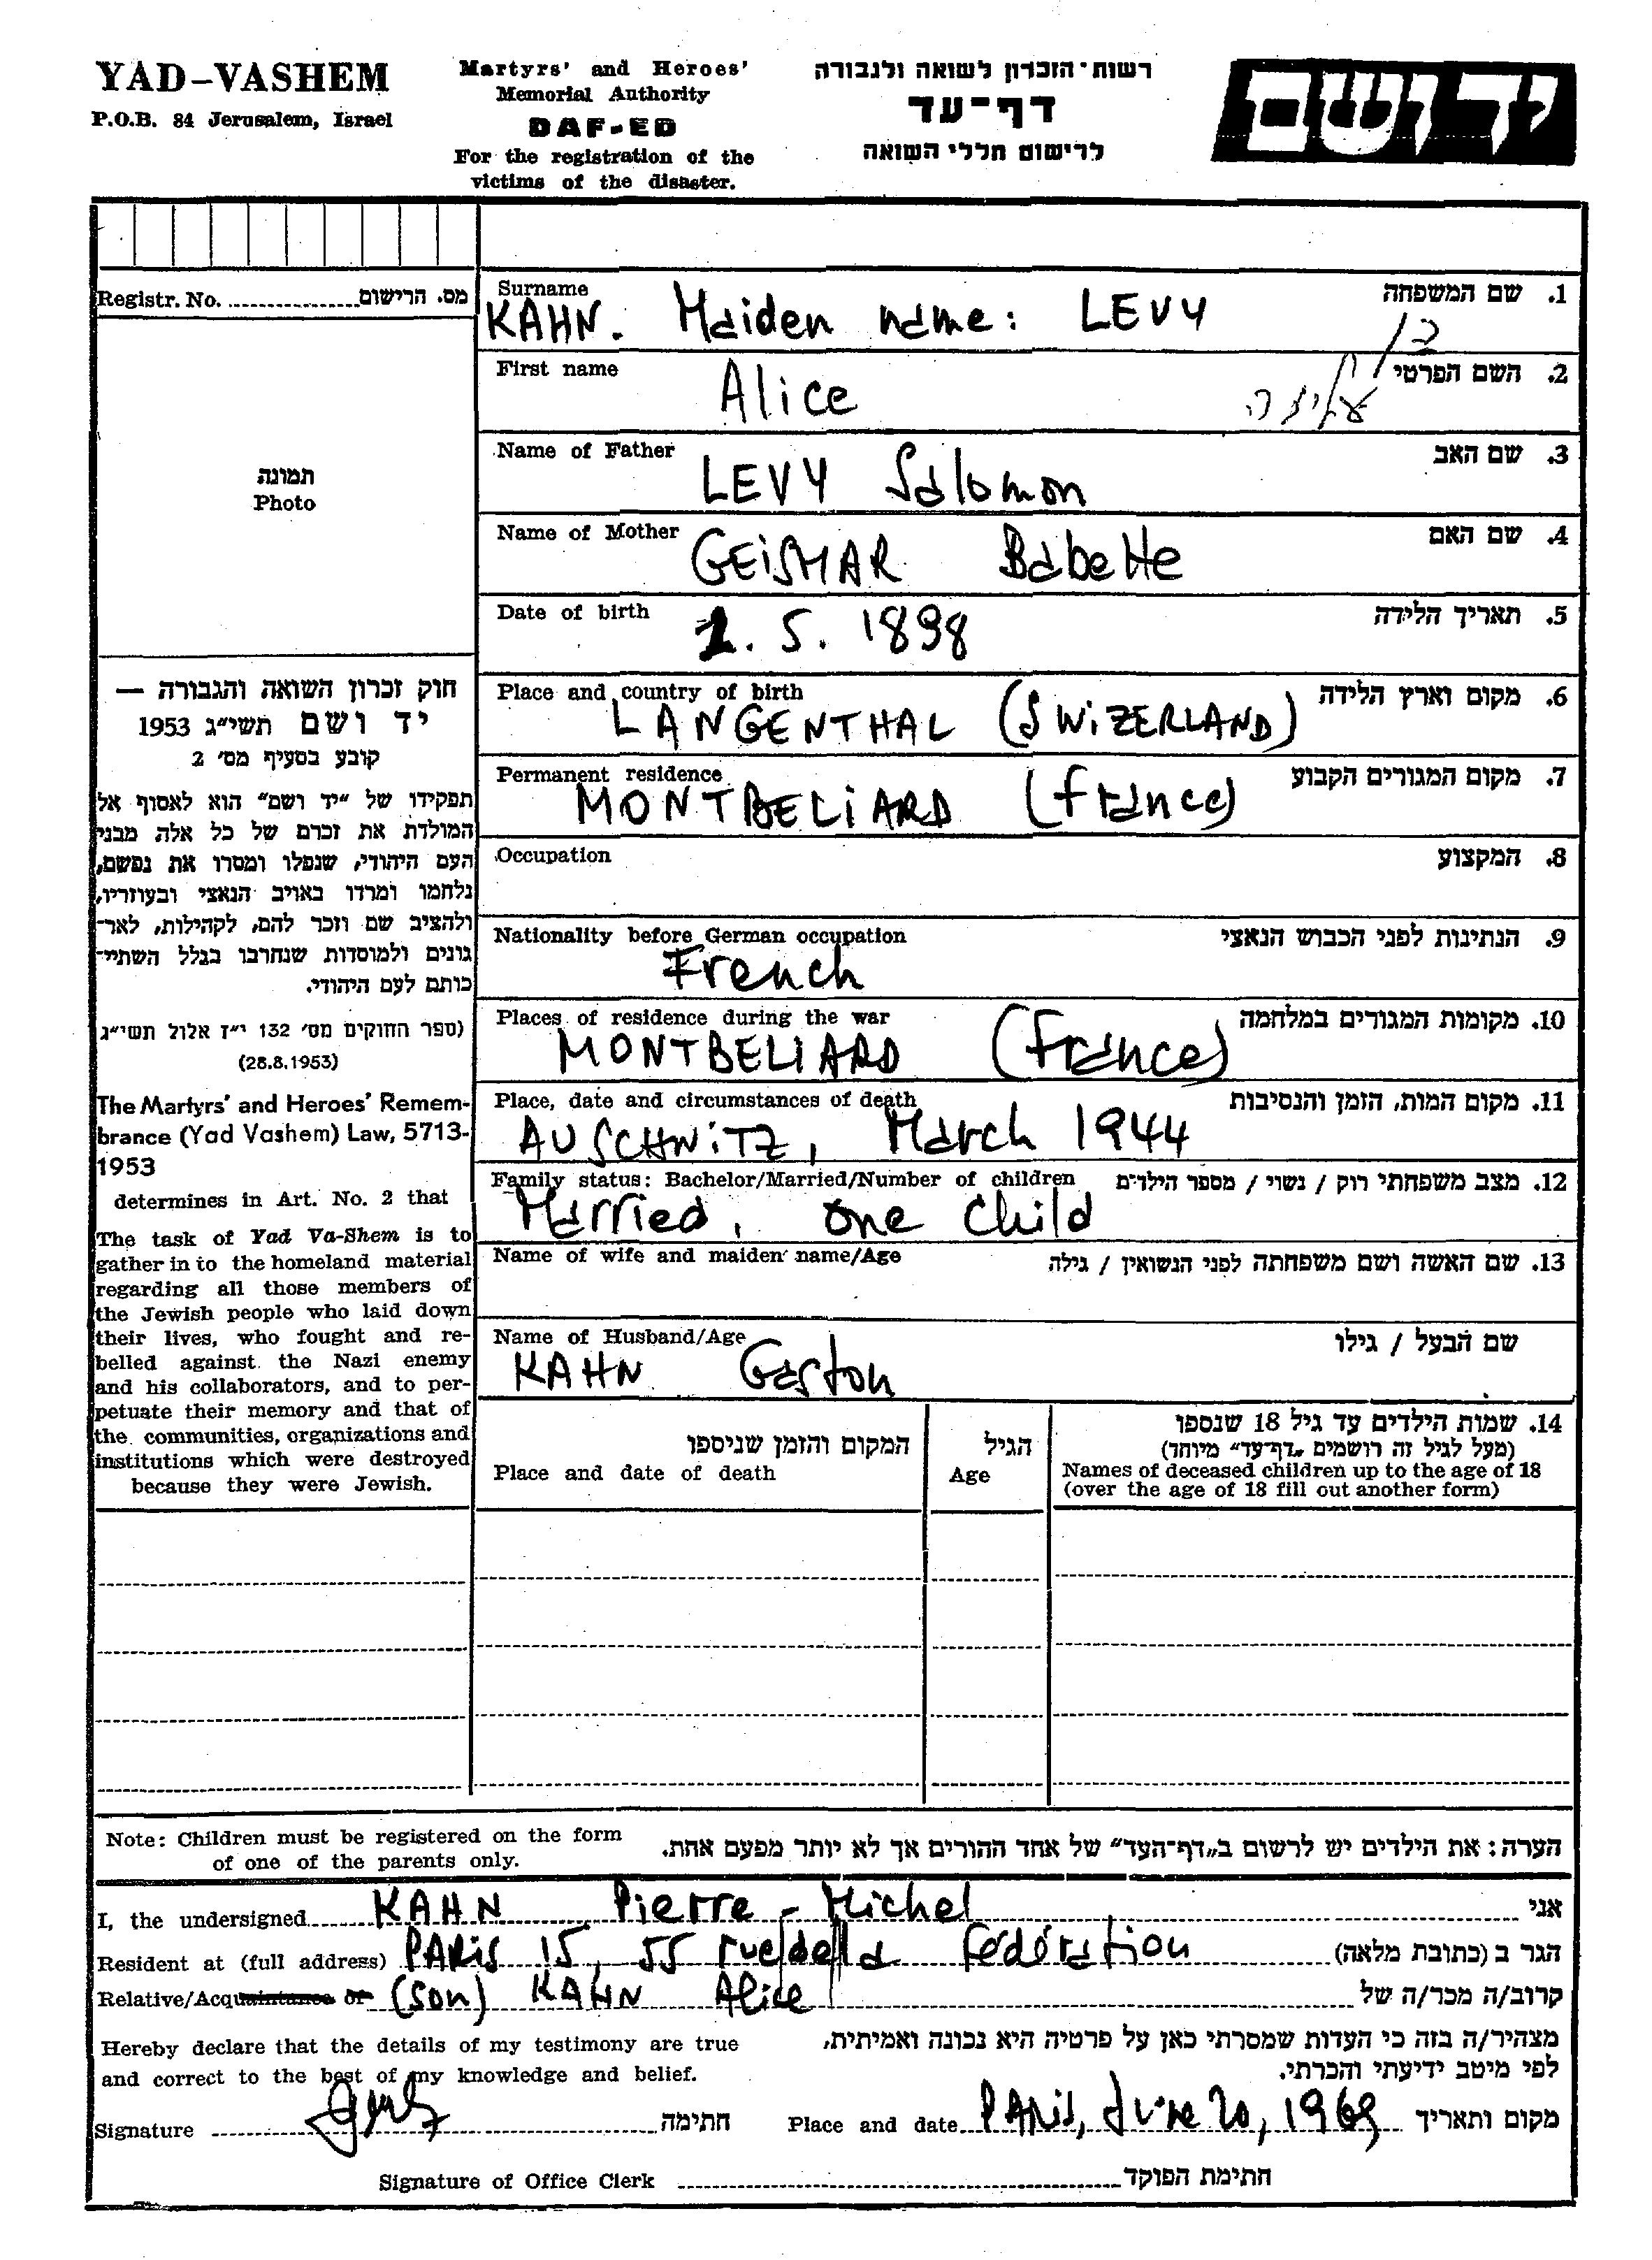 YAD-VASHEM
P.O.B. 84 Jerusalem, Israel
Martyrs' and Heroes'
Memorial Authority
DAF-ED
For the registration of the
victims of the disaster.
רשות־הזכרון לשואה ולגבורה
דף־עד
לרישום חללי השואה
יד ושם
Registr. No. מס. הרישום
תמונה
Photo
חוק זכרון השואה והגבורה —
יד ושם תשי״ג 1953
קובע בסעיף מס׳ 2
תפקידו של ״יד ושם״ הוא לאסוף אל
המולדת את זכרם של כל אלה מבני
העם היהודי, שנפלו ומסרו את נפשם,
נלחמו ומרדו באויב הנאצי ובעוזריו,
ולהציב שם וזכר להם, לקהילות, לאר־
גונים ולמוסדות שנחרבו בגלל השתיי־
כותם לעם היהודי.
(ספר החוקים מס׳ 132 י״ז אלול תשי״ג
(28.8.1953)
The Martyrs' and Heroes' Remem-
brance (Yad Vashem) Law, 5713-
1953
determines in Art. No. 2 that
The task of Yad Va-Shem is to
gather in to the homeland material
regarding all those members of
the Jewish people who laid down
their lives, who fought and re-
belled against the Nazi enemy
and his collaborators, and to per-
petuate their memory and that of
the communities, organizations and
institutions which were destroyed
because they were Jewish.
Surname 1. שם המשפחה
KAHN. Maiden name: LEVY
כהן
First name 2. השם הפרטי
Alice עליזה
Name of Father 3. שם האב
LEVY Salomon
Name of Mother 4. שם האם
GEiSMAR Babette
Date of birth 5. תאריך הלידה
1. 5. 1898
Place and country of birth 6. מקום וארץ הלידה
LANGENTHAL (SWiZERLAND)
Permanent residence 7. מקום המגורים הקבוע
MONTBELiARD (France)
Occupation 8. המקצוע
Nationality before German occupation 9. הנתינות לפני הכבוש הנאצי
French
Places of residence during the war 10. מקומות המגורים במלחמה
MONTBELIARD (France)
Place, date and circumstances of death 11. מקום המות, הזמן והנסיבות
AUSCHWiTZ, March 1944
Family status: Bachelor/Married/Number of children 12. מצב משפחתי רוק / נשוי / מספר הילדים
Married, one child
Name of wife and maiden name/Age 13. שם האשה ושם משפחתה לפני הנשואין / גילה
Name of Husband/Age שם הבעל / גילו
KAHN Gaston
14. שמות הילדים עד גיל 18 שנספו
(מעל לגיל זה רושמים „דף־עד״ מיוחד)
Names of deceased children up to the age of 18
(over the age of 18 fill out another form)
הגיל
Age
המקום והזמן שניספו
Place and date of death
Note: Children must be registered on the form
of one of the parents only.
הערה: את הילדים יש לרשום ב„דף־העד״ של אחד ההורים אך לא יותר מפעם אחת.
I, the undersigned KAHN Pierre-Michel אני
Resident at (full address) PARiS 15, 55 rue de la Fédération הגר ב (כתובת מלאה)
Relative/Acquaintance of (son) KAHN Alice קרוב/ה מכר/ה של
Hereby declare that the details of my testimony are true
and correct to the best of my knowledge and belief.
מצהיר/ה בזה כי העדות שמסרתי כאן על פרטיה היא נכונה ואמיתית,
לפי מיטב ידיעתי והכרתי.
Signature חתימה
Place and date PARiS, June 20, 1969 מקום ותאריך
Signature of Office Clerk חתימת הפוקד